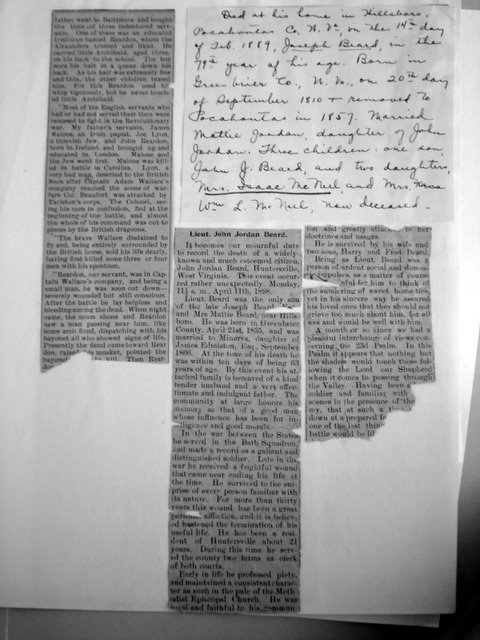 father went to Baltimore and bought
the time of three indentured serv-
ants. One of these was an educated
Irishman named Reardon, whom the
Alexanders trusted and liked. He
carried little Archibald, aged three,
on his back to the school. The boy
wore his hair in a queue down his
back. As his hair was extremely fine
and thin, the other children teased
him. For this Reardon used to
whip vigorously, but he never touch-
ed little Archibald.
"Most of the English servants who
had or had not served their time were
released to fight in the Revolutionary
war. My father's servants, James
Malone, an Irish papist, Joe Lyon,
a thievish Jew, and John Reardon,
born in Ireland, and brought up and
educated in London. Malone and
the Jew went first. Malone was kill-
ed in battle in Carolina. Lyon, a
very bad man, deserted to the British
Soon after Captain Adam Wallace's
company reached the scene of war-
fare Col. Beaufort was attacked by
Tarleton's corps. The Colonel, see-
ing his men in confusion, fled at the
beginning of the battle, and almost
the whole of his command was cut to
pieces by the British dragoons.
"The brave Wallace disdained to
fly and, being entirely surrounded by
the British horse, sold his life dearly,
having first killed some three or four
men with his spontoon.
"Reardon, our servant, was in Cap-
tain Wallace's company, and being a
small man, he was soon cut down—
severely wounded but still conscious.
After the battle he lay helpless and
bleeding among the dead. When night
came, the moon shone and Reardon
saw a man passing near him, like
some arch fiend, dispatching with his
bayonet all who showed signs of life.
Presently the fiend came toward Rear-
don, raised his musket, pointed the
bayonet to kill. Then Rear-
Died at his home in Hillsboro,
Pocahontas Co. W. Va, on the 14th day
of Feb. 1889, Joseph Beard, in the
79th year of his age. Born in
Greenbrier Co., W. Va. on 20th day
of September 1810 + removed to
Pocahontas in 1857. Married
Mattie Jordan, daughter of John
Jordan. Three children: one son,
John J. Beard, and two daughters,
Mrs. Isaac McNeil and Mrs.
Wm L. McNeil, now deceased.
Lieut. John Jordan Beard.
It becomes our mournful duty
to record the death of a widely-
known and much esteemed citizen,
John Jordan Beard, Huntersville,
West Virginia. This event occur-
red rather unexpectedly, Monday,
11¼ a.m., April 11th, 1898.
Lieut. Beard was the only son
of the late Joseph Beard
and Mrs Mattie Beard, near Hills-
boro. He was born in Greenbrier
County, April 21st, 1835, and was
married to Minerva, daughter of
James Edmiston, Esq., September
1866. At the time of his death he
was within ten days of being 63
years of age. By this event his at-
tached family is bereaved of a kind
tender husband and a very affec-
tionate and indulgent father. The
community at large honors his
memory as that of a good man
whose influence has been for in-
telligence and good morals.
In the war between the States
he served in the Bath Squadron,
and made a record as a gallant and
distinguished soldier. Late in the
war he received a frightful wound
that came near ending his life at
the time. He survived to the sur-
prise of every person familiar with
its nature. For more than thirty
years this wound has been a great
personal affliction, and it is believ-
ed hastened the termination of his
useful life. He has been a resi-
dent of Huntersville about 21
years. During this time he serv-
ed the county two terms as clerk
of both courts.
Early in life he professed piety,
and maintained a consistent charac-
ter as such in the pale of the Meth-
odist Episcopal Church. He was
loyal and faithful to his commun
ion and greatly attached to her
doctrines and usages.
He is survived by his wife and
two sons, Harry and Fred Beard
Being as Lieut. Beard was a
person of ardent social and domes-
tic feelings, as a matter of course
painful for him to think of
the sundering of sweet home ties,
yet in his sincere way he assured
his loved ones that they should not
grieve too much about him, for all
was and would be well with him.
A month or so since we had a
pleasant interchange of views con-
cerning the 23d Psalm. In this
Psalm it appears that nothing but
the shadow would touch those fol-
lowing the Lord our Shepherd
when it comes to passing through
the Valley. Having been a
soldier and familiar with
scenes in the presence of the
my, that at such a
down at a prepared
one of the last things
battle would be